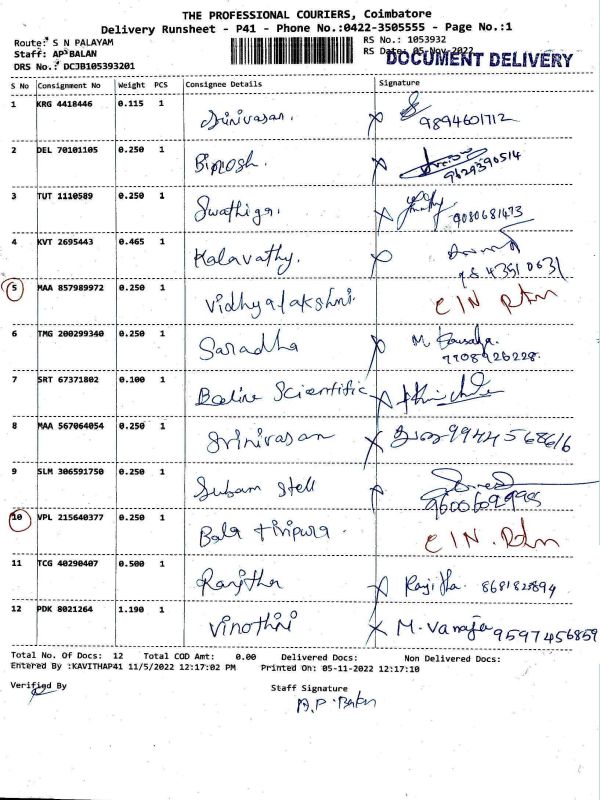 THE PROFESSIONAL COURIERS, Coimbatore
Delivery Runsheet - P41 - Phone No.:0422-3505555 - Page No.:1
Route: S N PALAYAM RS No.: 1053932
Staff: AP BALAN RS Date: 05-Nov-2022
DOCUMENT DELIVERY
DRS No.: DCJB105393201
S No Consignment No Weight PCS Consignee Details Signature
1 KRG 4418446 0.115 1 Srinivasan. 9894601712
2 DEL 70101105 0.250 1 9629390514
3 TUT 1110589 0.250 1 Swathiga. 9080681473
4 KVT 2695443 0.465 1 Kalavathy. 9843510631
5 MAA 857989972 0.250 1 Vidhyalakshmi. C/N Rtn
6 TMG 200299340 0.250 1 Saradha M. 7708926228.
7 SRT 67371802 0.100 1 Scientific
8 MAA 567064054 0.250 1 Srinivasan 9944568616
9 SLM 306591750 0.250 1 Subam Stell 9600602998
10 VPL 215640377 0.250 1 Bala tiripura. C/N. Rtn
11 TCG 40290407 0.500 1 Ranjitha Ranjitha. 8681828894
12 PDK 8021264 1.190 1 Vinothini M. Vanaja 9597456859
Total No. Of Docs: 12 Total COD Amt: 0.00 Delivered Docs: Non Delivered Docs:
Entered By :KAVITHAP41 11/5/2022 12:17:02 PM Printed On: 05-11-2022 12:17:10
Verified By Staff Signature
A.P. Balan